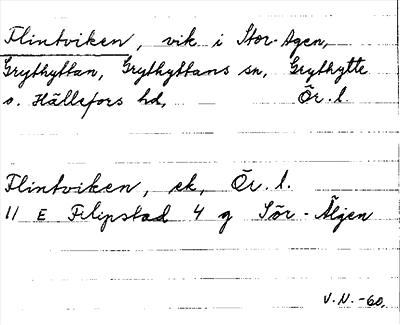 Flintviken, vik i Stor-Agen,
Grythyttan, Grythyttans sn, Grythytte
o. Hällefors hd, Ör. l
Flintviken, ek, Ör. l.
11 E Filipstad 4 g Sör-Älgen
V. N. -60.